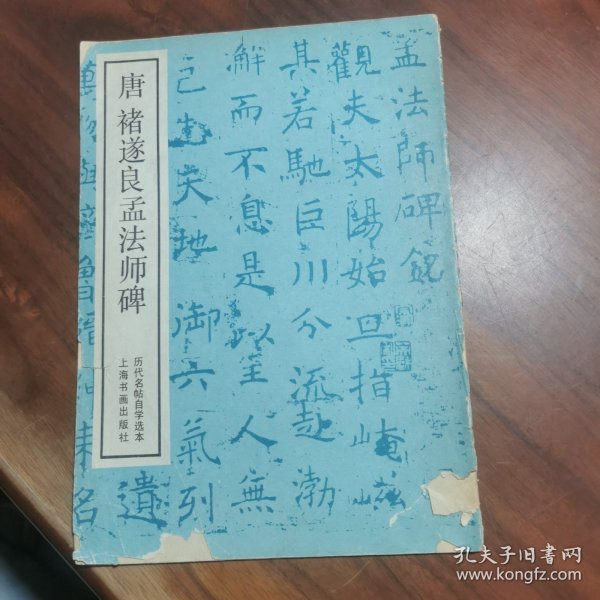 唐 褚遂良孟法师碑
历代名帖自学选本
上海书画出版社
孟法师碑銘
觀夫太陽始旦指崦嵫
其若馳巨川分流赴渤
澥而不息是以至人無
己造天地御六氣列
遺
名
孔夫子旧书网
www.kongfz.com